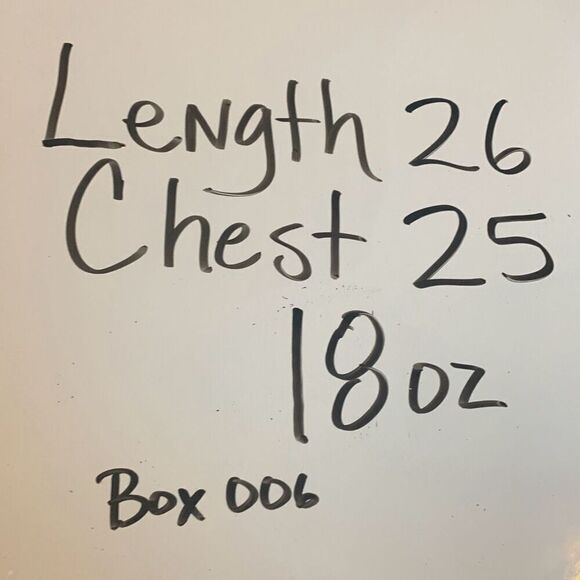 Length 26
Chest 25
18 oz
Box 006